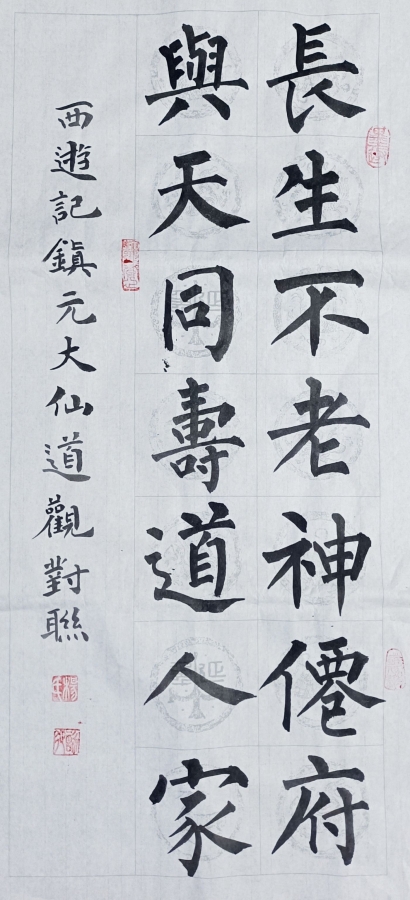 長生不老神僊府
與天同壽道人家
西遊記鎮元大仙道觀對聯